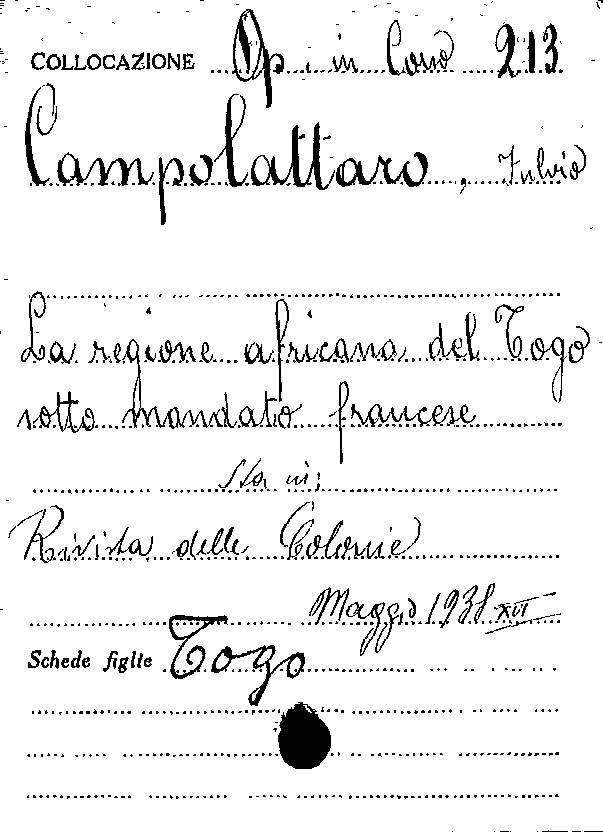 COLLOCAZIONE Op. in Corso 213
Campolattaro, Fulvio
La regione africana del Togo
sotto mandato francese
Sta in:
Rivista delle Colonie
Maggio 1938 XVI
Schede figlie Togo